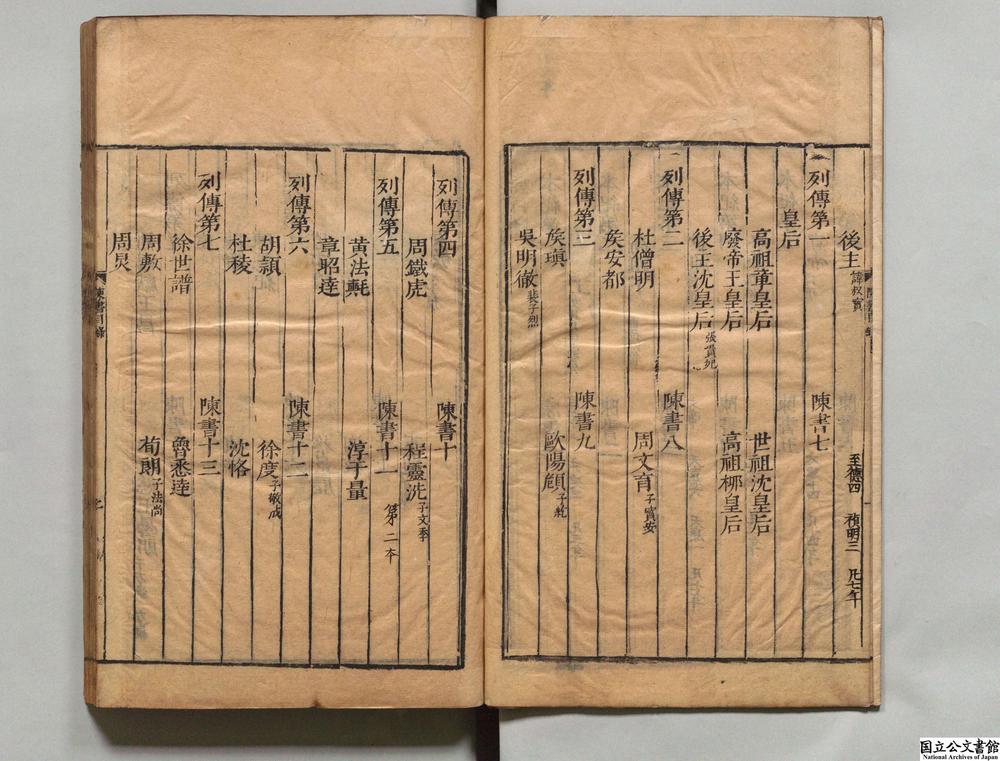 後主 諱叔寳 至德四 禎明三 凡七年
列傳第一 陳書七
皇后
高祖章皇后 世祖沈皇后
廢帝王皇后 高祖栁皇后
後主沈皇后 張貴妃
列傳第二 陳書八
杜僧明 周文育 子寳安
矦安都
列傳第三 陳書九
矦瑱 歐陽頠 子紇
吳明徹 裴子烈
列傳第四 陳書十
周鐵虎 程靈洗 子文季
列傳第五 陳書十一 第二本
黃法𣰰 淳于量
章昭達
列傳第六 陳書十二
胡頴 徐度 子敬成
杜稜 沈恪
列傳第七 陳書十三
徐世譜 魯悉達
周敷 荀朗 子法尚
周炅
陳書目錄
国立公文書館
National Archives of Japan